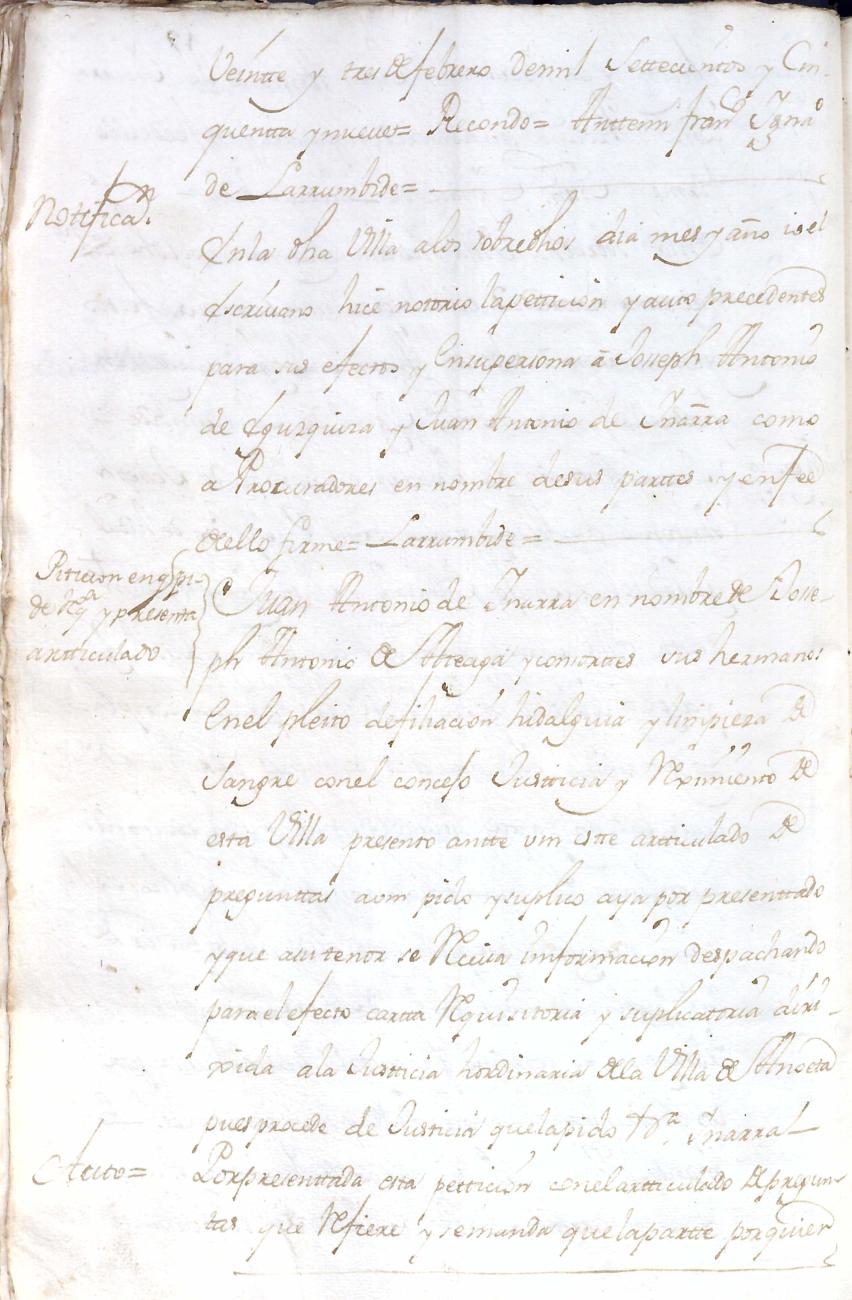 Veintte y tres de febrero demil Settecientos y Cin-
quentta y nueve= Recondo= Anttemi franco Ignao
de Larrumbide=
Notificaon
Enla dha Villa alos sobredhos dia mes y año io el
Escrivano hice notorio lapettición y auto precedentes
para sus efectos y Ensupersona a Josseph Antonio
de Eguzquiza y Juan Antonio de Inarra como
a Procuradores en nombre desus parttes y enfee
dello firme= Larrumbide=
Peticion en q pi-
de Rqa y presenta
artticulado
Juan Antonio de Inarra en nombre de Jose-
ph Antonio de Artteaga yconsortes sus hermanos
Enel pleito defiliación hidalguia y limpieza de
Sangre conel concejo Justticia y Reximiento de
esta Villa presento antte vm estte artticulado de
pregunttas avm pido ysuplico aya por presenttado
yque asutenor se Reciva Ynformación despachando
paraelefecto cartta Requisitoria y suplicatoria diri-
xida ala Justticia hordinaria dela Villa de Anoeta
pues procede de Justicia quelapido &a. Inarra
Auto=
Porpresenttada esta pettición conelartticulado depregun-
tas que Refiere y semanda quelapartte porquien